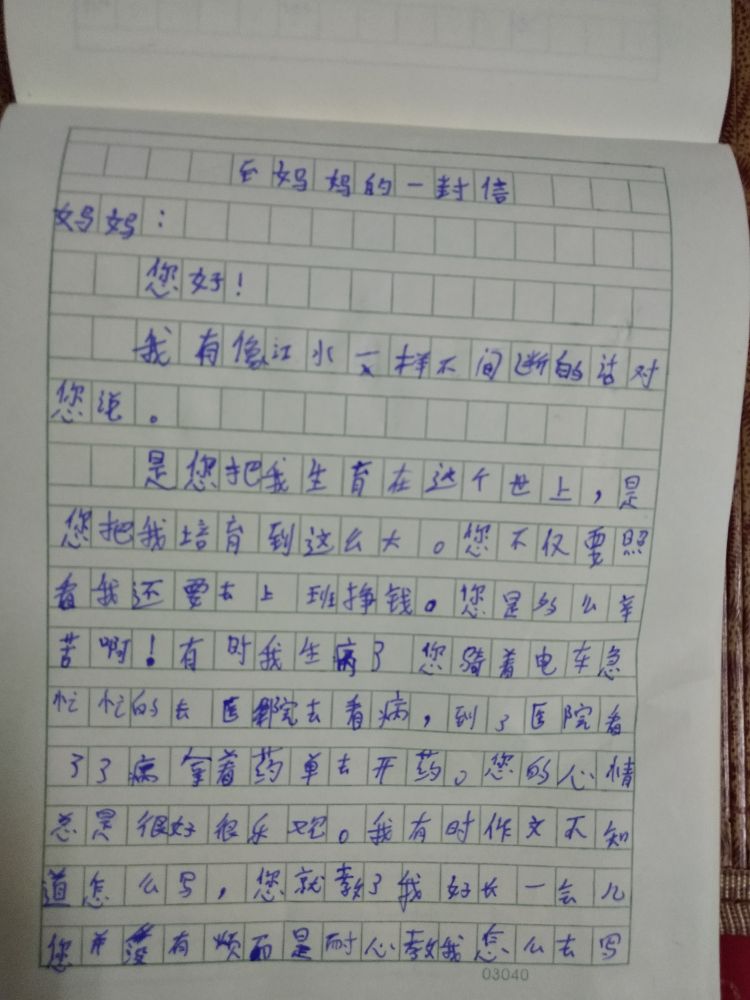 妈妈的一封信
妈妈：
您好！
我有像江水一样不间断的话对
您说。
是您把我生育在这个世上，是
您把我培育到这么大。您不仅要照
看我还要去上班挣钱。您是多么辛
苦啊！有时我生病了您骑着电车急
忙忙的去医院去看病，到了医院看
了了病拿着药单去开药。您的心情
总是很好很乐观。我有时作文不知
道怎么写，您就教了我好长一会儿
您并没有烦而是耐心教我怎么去写
03040